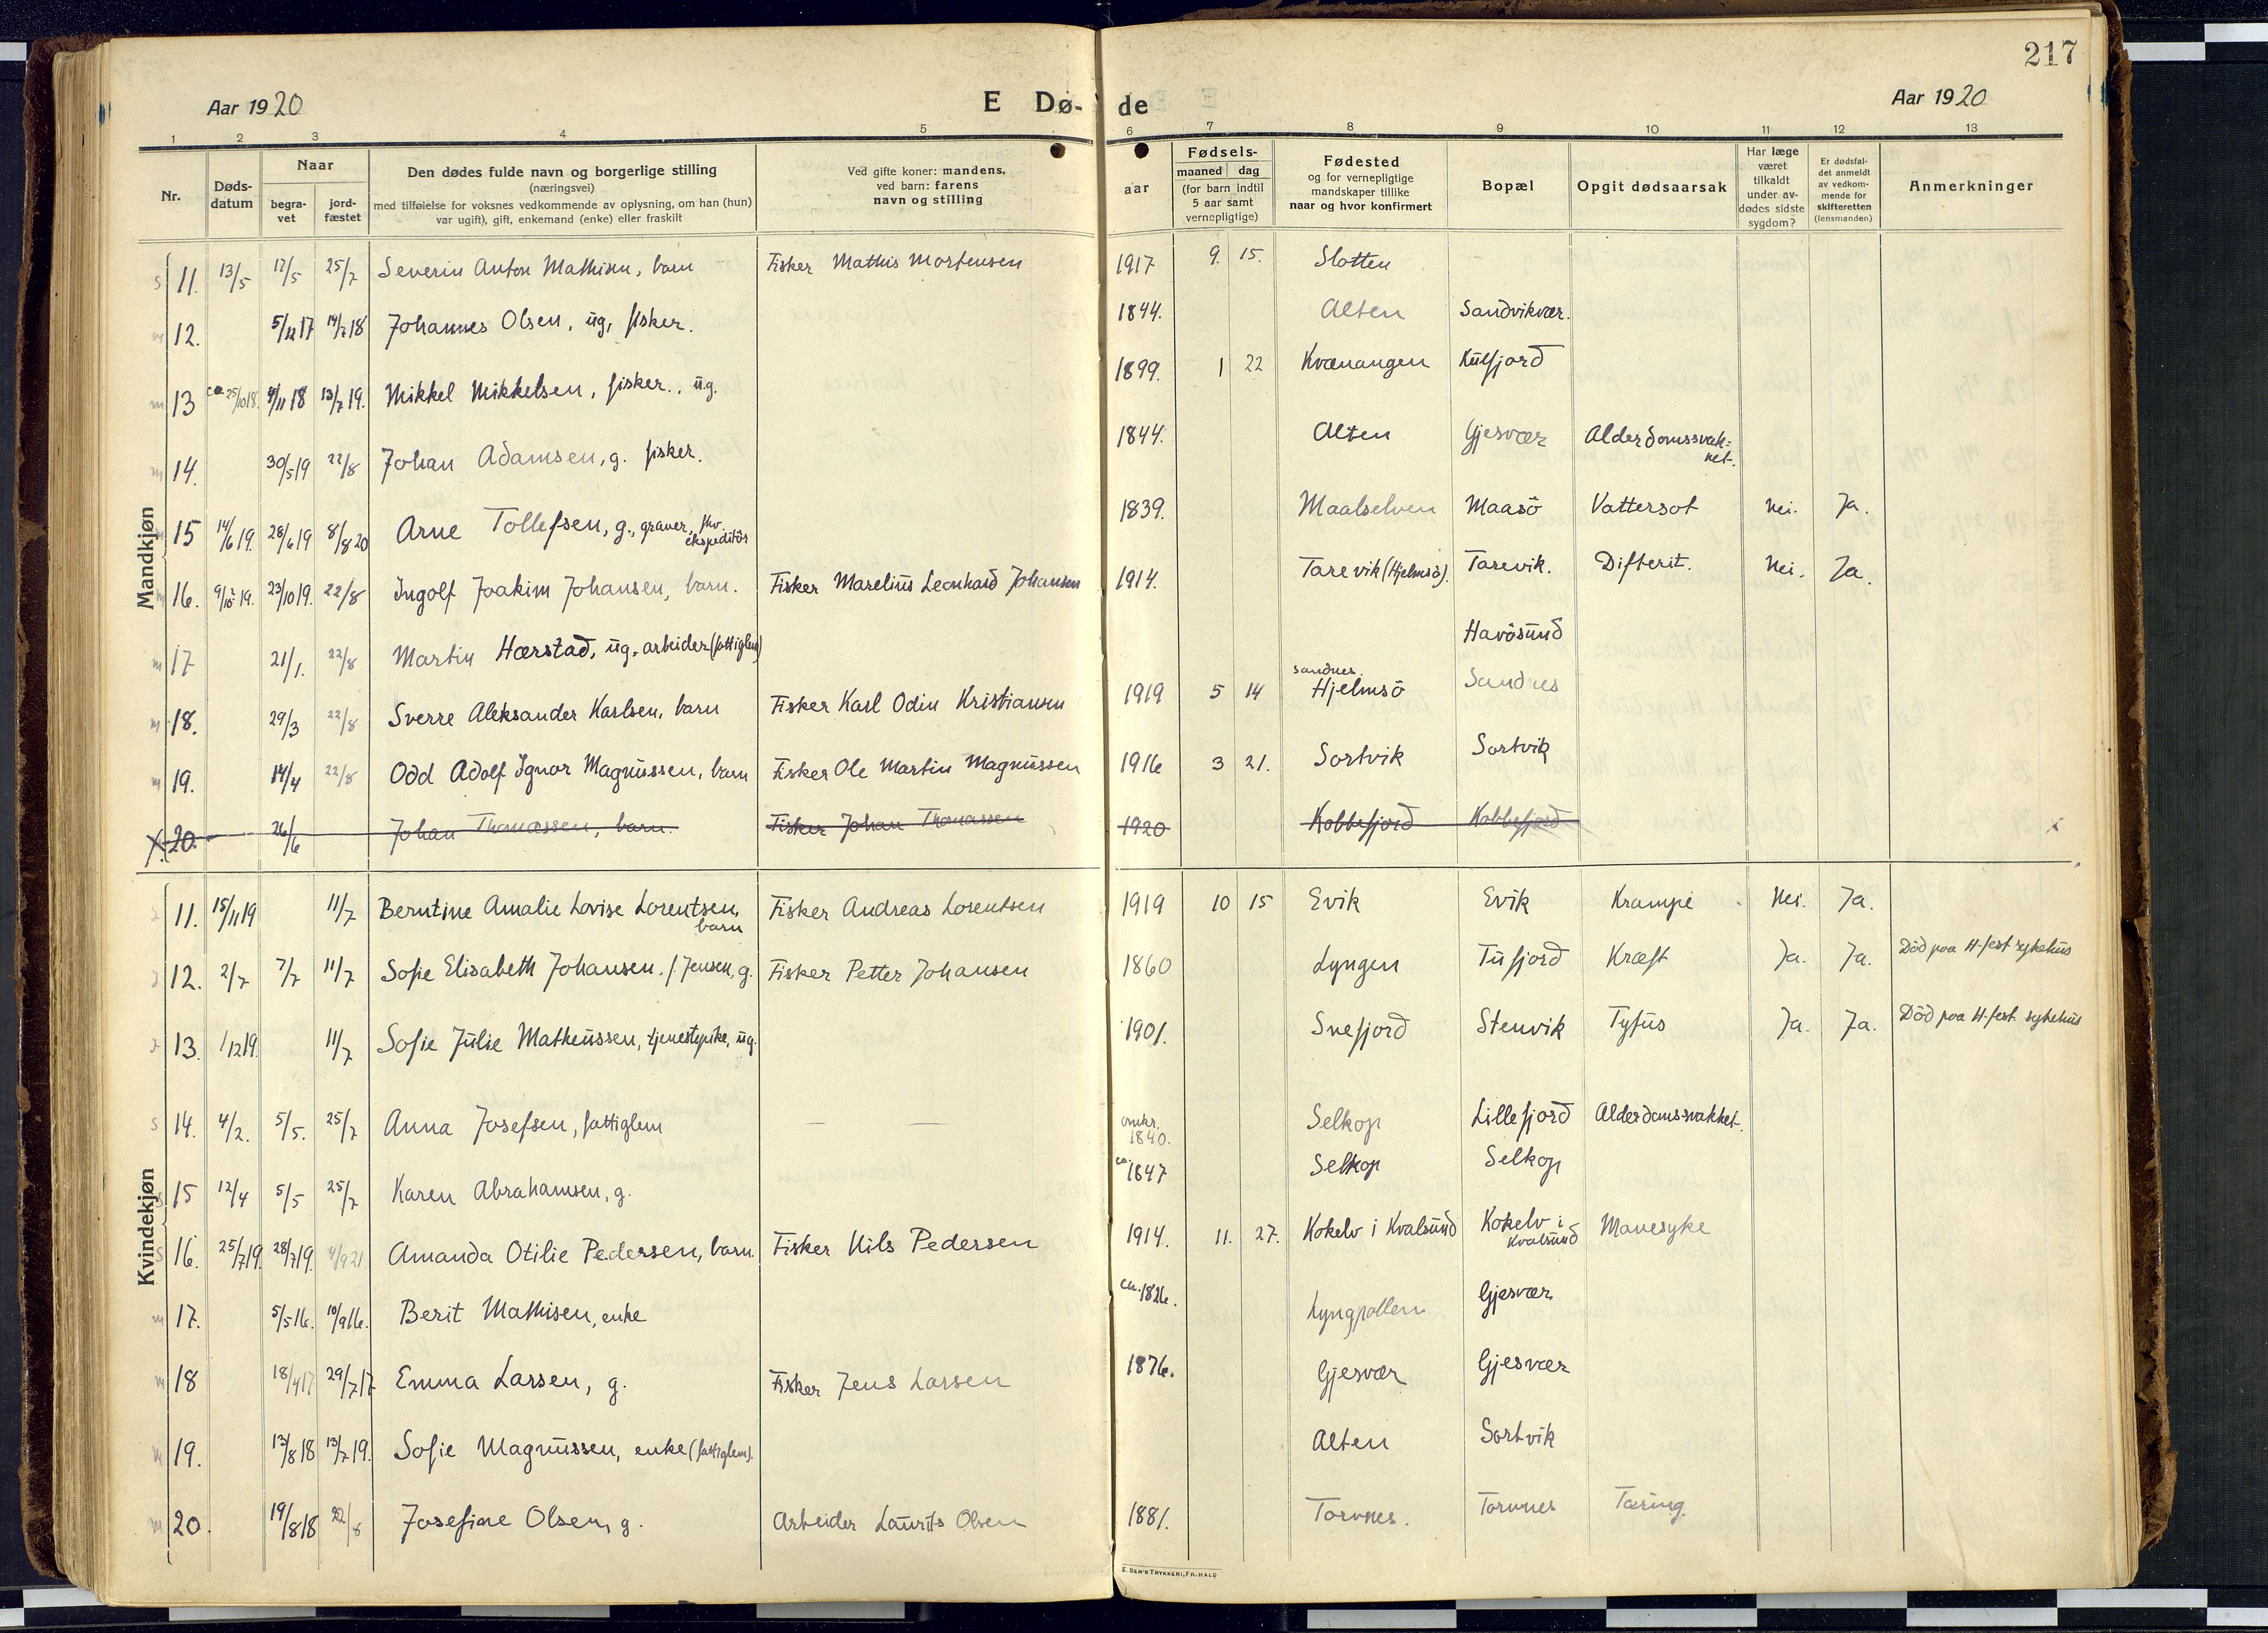 217
Aar 1920 E Dø- de Aar 1920
1 2 3 4 5 6 7 8 9 10 11 12 13
Nr. Døds-datum Naar begra-vet jord-fæstet Den dødes fulde navn og borgerlige stilling (næringsvei) med tilføielse for voksnes vedkommende av oplysning, om han (hun) var ugift), gift, enkemand (enke) eller fraskilt Ved gifte koner: mandens, ved barn: farens navn og stilling aar Fødsels- maaned dag (for barn indtil 5 aar samt vernepligtige) Fødested og for vernepligtige mandskaper tillike naar og hvor konfirmert Bopæl Opgit dødsaarsak Har læge været tilkaldt under av-dødes sidste sygdom? Er dødsfal-det anmeldt av vedkom-mende for skifteretten (lensmanden) Anmerkninger
Mandkjøn
s 11. 13/5 17/5 25/7 Severin Anton Mathisen, barn Fisker Mathis Mortensen 1917 9. 15. Slotten
m 12. 5/12 17 14/7 18 Johannes Olsen, ug, fisker. 1844. Alten Sandvikvær.
m 13 ca 25/10 18. /11 18 13/7 19. Mikkel Mikkelsen, fisker., ug. 1899. 1 22 Kvænangen Kulfjord
m 14. 30/5 19 22/8 Johan Adamsen, g. fisker. 1844. Alten Gjesvær Alderdomssvak=het.
15 14/6 19. 28/6 19 8/8 20 Arne Tollefsen, g., graver, skv. ekspeditör 1839. Maalselven Maasö Vattersot Nei. Ja.
m 16. 9/10 19. 23/10 19. 22/8 Ingolf Joakim Johansen, barn. Fisker Marelius Leonhard Johansen 1914. Tarevik (Hjelmsö). Tarevik. Difterit. Nei. Ja.
m 17 21/1. 22/8 Martin Hærstad, ug. arbeider (fattiglem) Havösund
m 18. 29/3 22/8 Sverre Aleksander Karlsen, barn Fisker Karl Odin Kristiansen 1919 5 14 Sandnes Hjelmsö Sandnes
m 19. 14/4 22/8 Odd Adolf Ignor Magnussen, barn Fisker Ole Martin Magnussen 1916 3 21. Sortvik Sortvik
X. 20. 26/6 Johan Thomassen, barn. Fisker Johan Thomassen 1920 Kobbefjord Kobbefjord x
Kvindekjøn
11. 15/11 19 11/7 Berntine Amalie Lovise Lorentsen, barn Fisker Andreas Lorentsen 1919 10 15 Evik Evik Krampe Nei. Ja.
12. 2/7 7/7 11/7 Sofie Elisabeth Johansen. f. Jensen, g. Fisker Petter Johansen 1860 Lyngen Tufjord Kræft Ja. Ja. Död paa H-fest sykehus
13. 1/12 19. 11/7 Sofie Julie Matheussen, tjenestepike, ug. 1901. Snefjord Stenvik Tyfus Ja. Ja. Död paa H-fest. sykehus
s 14. 4/2. 5/5. 25/7 Anna Josefsen, fattiglem — — omkr. 1840. Selkop Lillefjord Alderdomssvakhet.
s 15 12/4 5/5 25/7 Karen Abrahamsen, g. ca. 1847 Selkop Selkop
s 16. 25/7 19. 28/7 19. 4/9 21. Amanda Otilie Pedersen, barn. Fisker Nils Pedersen 1914. 11. 27. Kokelv i Kvalsund Kokelv i Kvalsund Mavesyke
m 17. 5/5 16. 10/9 16. Berit Mathisen, enke ca. 1826. Lyngpollen Gjesvær
m 18 18/4 17 29/7 17 Emma Larsen, g. Fisker Jens Larsen 1876. Gjesvær Gjesvær
m 19. 13/8 18 13/7 19. Sofie Magnussen, enke (fattiglem). Alten Sortvik
m 20. 19/8 18 22/8 Josefine Olsen, g. Arbeider Laurits Olsen 1881. Torvnes. Torvnes Tæring.
E. SEM'S TRYKKERI, FR.HALD